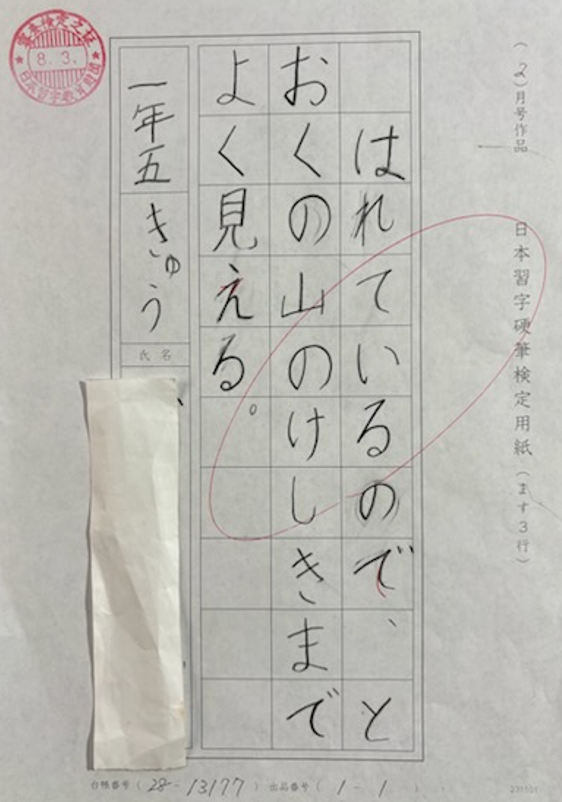 (2)月号作品 日本習字硬筆検定用紙(ます3行)
はれているので、と
おくの山のけしきまで
よく見える。
一年五きゅう
氏名
8.3.
台帳番号(28-13177) 出品番号(1-1)
231101